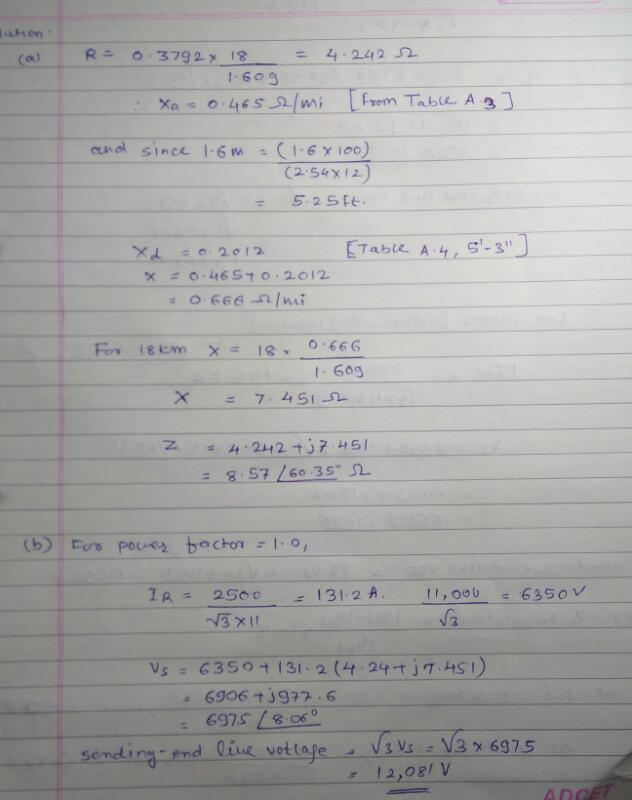 ution:
(a) R = 0.3792 × 18 / 1.609 = 4.242 Ω
∴ Xa = 0.465 Ω/mi [From Table A.3]
and since 1.6m = (1.6 × 100) / (2.54 × 12)
= 5.25 ft.
Xd = 0.2012 [Table A.4, 5'-3"]
X = 0.465 + 0.2012
= 0.666 Ω/mi
For 18km X = 18 × 0.666 / 1.609
X = 7.451 Ω
Z = 4.242 + j7.451
= 8.57 /60.35° Ω
(b) For power factor = 1.0,
IR = 2500 / √3 × 11 = 131.2 A. 11,000 / √3 = 6350 V
Vs = 6350 + 131.2 (4.24 + j7.451)
= 6906 + j977.6
= 6975 /8.06°
sending-end line voltage = √3 Vs = √3 × 6975
= 12,081 V
ADGET